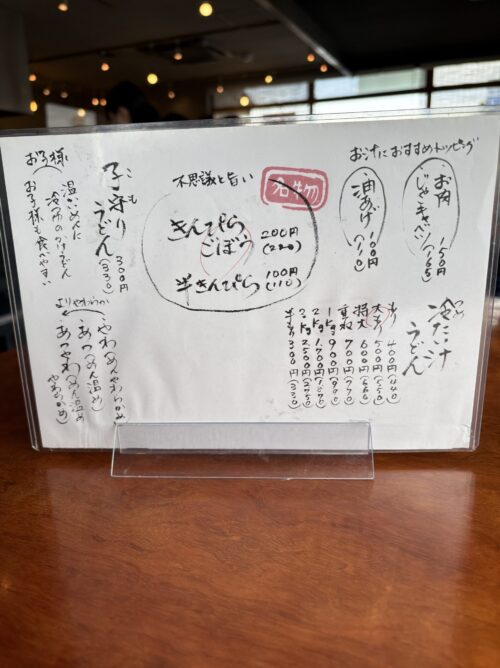 おつけにおすすめトッピング
お肉 150円
じゃこキャベツ (165)
油あげ 100円
(110)
つめ
冷たい汁
うどん
400円 (440)
大 500円 (550)
特大 600円 (660)
重ね 700円 (770)
1kg 900円 (990)
2kg 1,700円
3kg 2,500円 (2750)
半 300円 (330)
名物
不思議と旨い
きんぴら
ごぼう 200円
(220)
半きんぴら 100円
(110)
お子様
こも
子守り
うどん 300円
(330)
温かめんに
お子様も食べやすい
よりやわらか
やわ(めんやわらかめ)
あつ(めん温め)
あつやわ(めん温め
やわらかめ)